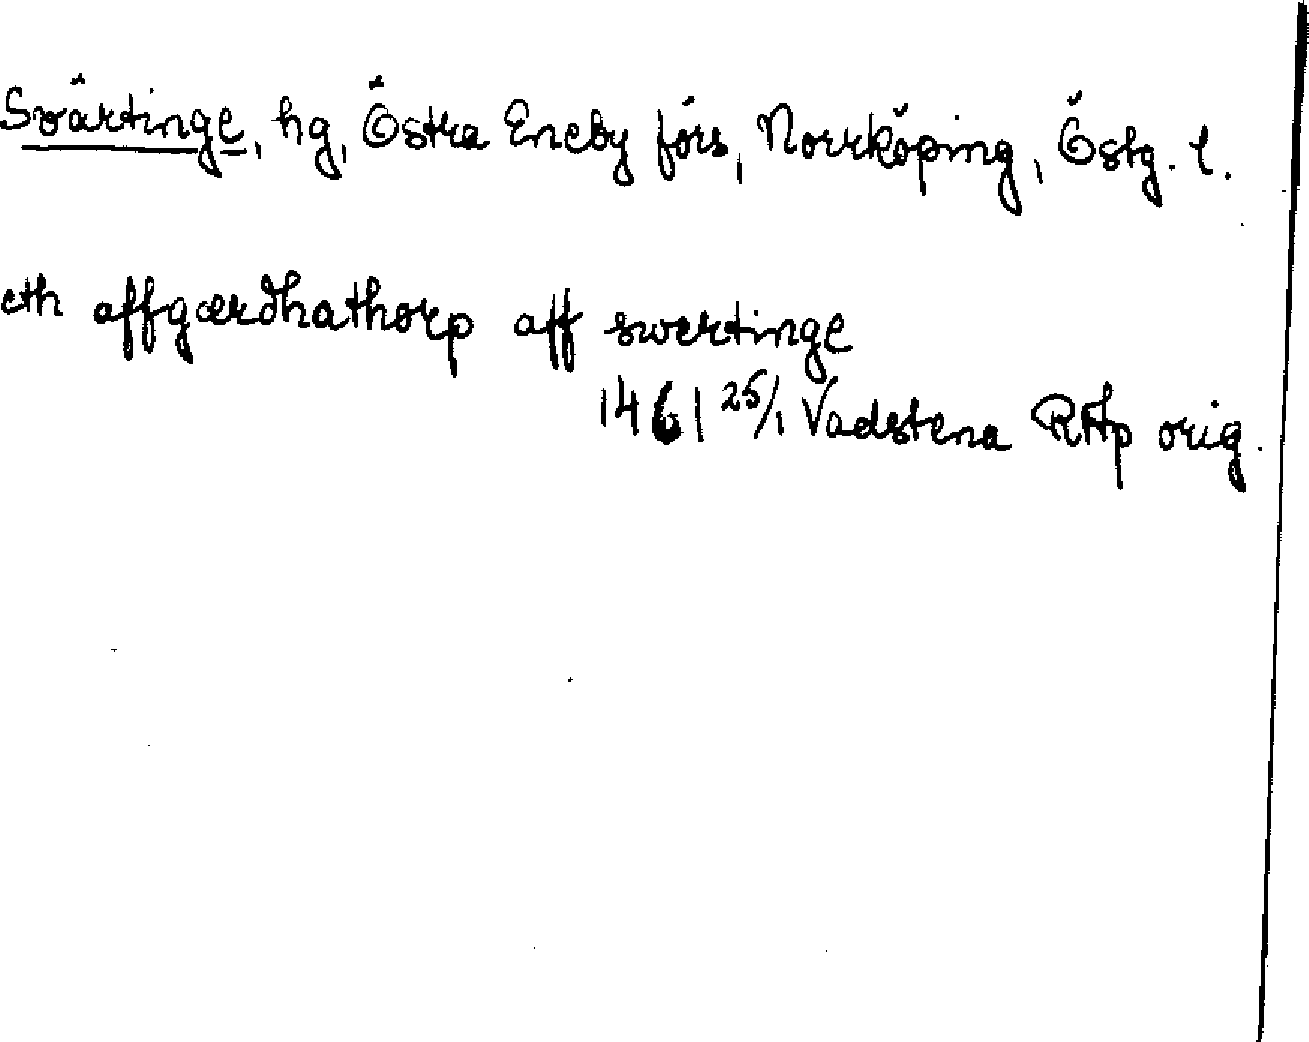 Svärtinge, hg, Östra Eneby förs, Norrköping, Östg. l.
eth affgærdhathorp aff swertinge
1461 25/1 Vadstena RAp orig.